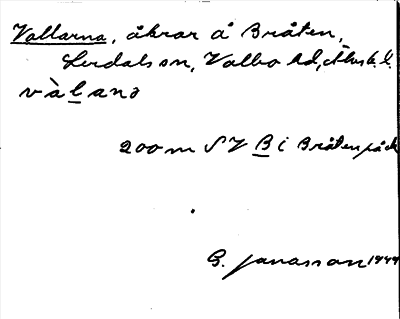 Vallarna, åkrar å Bråten,
Lerdals sn, Valbo hd, Älvsb. l.
vàlanə
200 m SV B i Bråten på ek
G. Janasson 1944